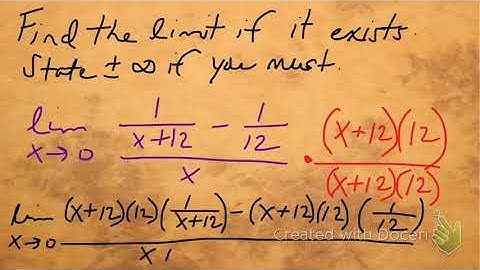 Find the limit if it exists.
State ± ∞ if you must.
lim x→0 (1/(x+12) - 1/12)/x · (x+12)(12)/(x+12)(12)
lim x→0 (x+12)(12)(1/(x+12)) - (x+12)(12)(1/12)
x
Created with Doceri